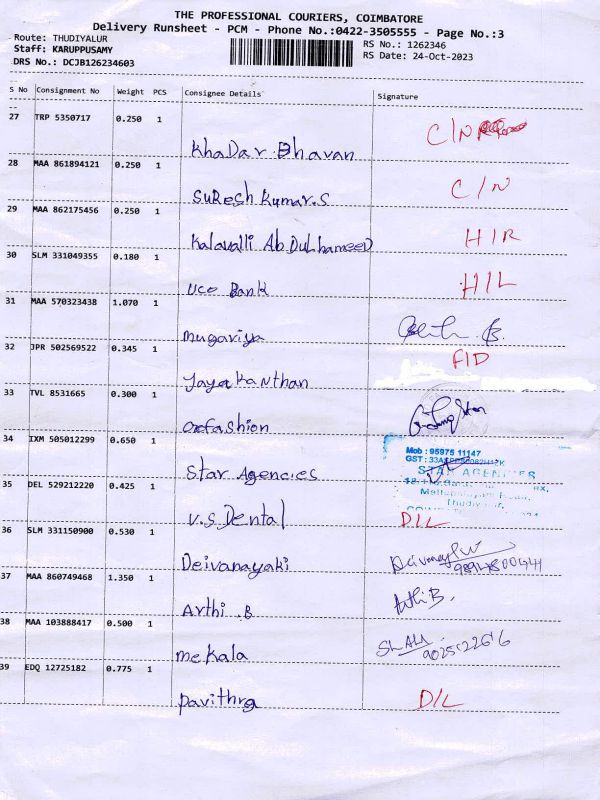 THE PROFESSIONAL COURIERS, COIMBATORE
Delivery Runsheet - PCM - Phone No.:0422-3505555 - Page No.:3
Route: THUDIYALUR
Staff: KARUPPUSAMY
DRS No.: DCJB126234603
RS No.: 1262346
RS Date: 24-Oct-2023
S No Consignment No Weight PCS Consignee Details Signature
27 TRP 5350717 0.250 1 Khadar Bhavan C/N
28 MAA 861894121 0.250 1 Suresh Kumar.S C/N
29 MAA 862175456 0.250 1 Kalavalli Abdulhameed H/R
30 SLM 331049355 0.180 1 UCO Bank H/L
31 MAA 570323438 1.070 1 mugaviya
32 JPR 502569522 0.345 1 Jayakanthan F/D
33 TVL 8531665 0.300 1 orefashion
34 IXM 505012299 0.650 1 Star Agencies
Mob : 95975 11147
STAR AGENCIES
Mettupalayam Road,
Thudiyalur,
35 DEL 529212220 0.425 1 V.S Dental D/L
36 SLM 331150900 0.530 1 Deivanayaki
37 MAA 860749468 1.350 1 Arthi .B Arthi B.
38 MAA 103888417 0.500 1 mekala
39 EDQ 12725182 0.775 1 Pavithra D/L